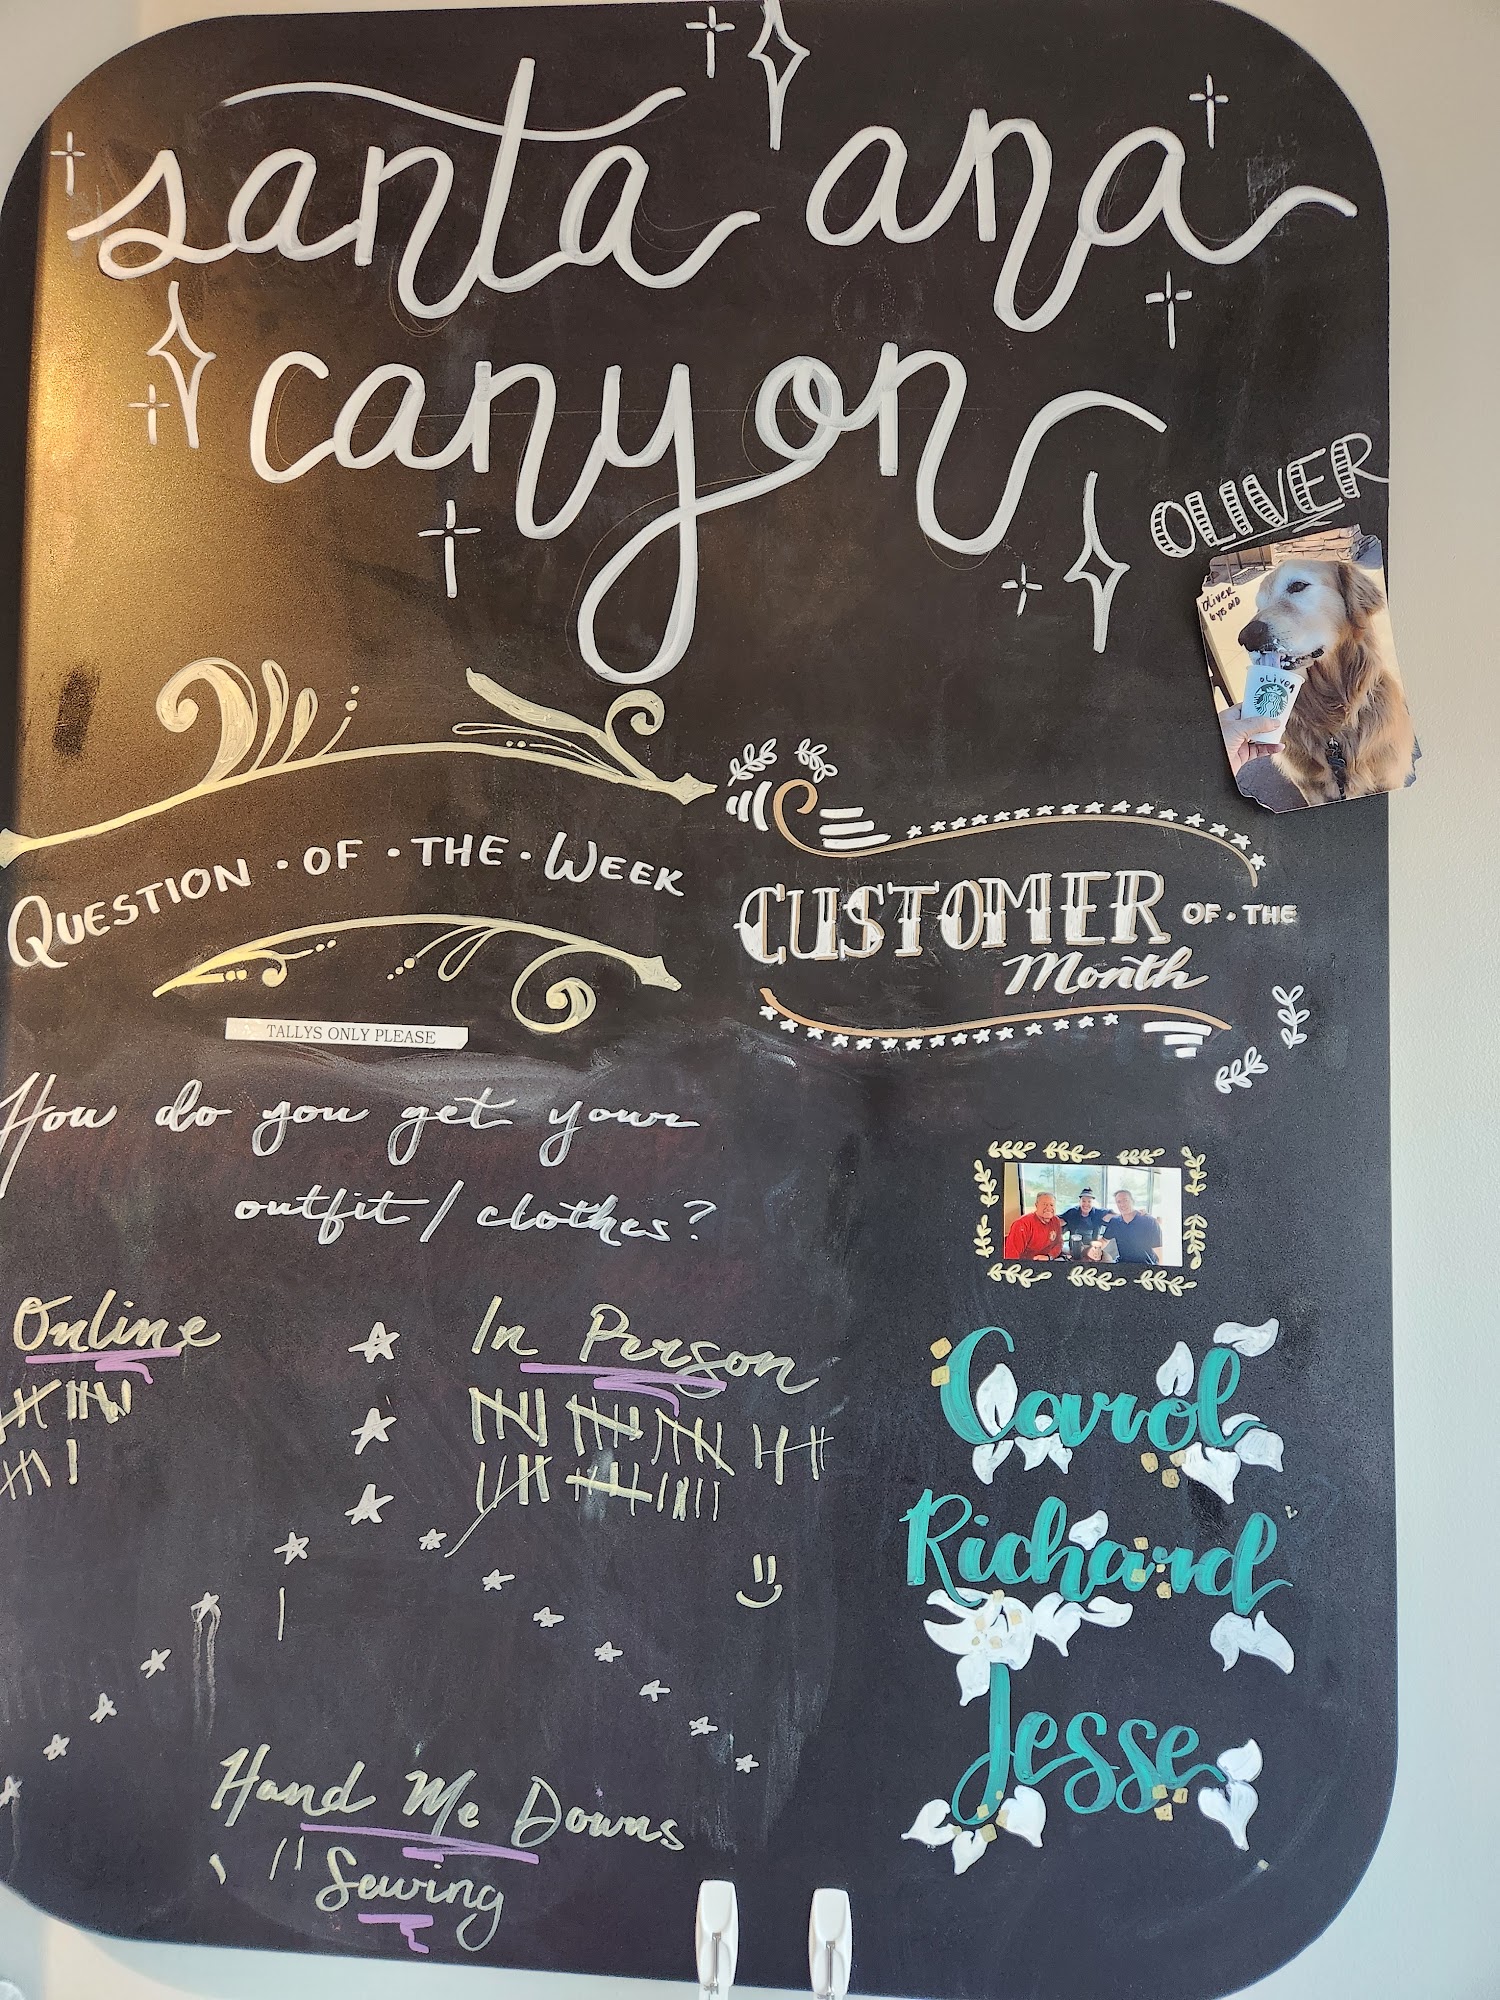 santa ana
canyon
OLIVER
Oliver
6 yrs old
OLIVER
QUESTION · OF · THE · WEEK
CUSTOMER OF · THE
Month
TALLYS ONLY PLEASE
How do you get your
outfit / clothes?
Online
In Person
Carol
Richard
Jesse
Hand Me Downs
Sewing